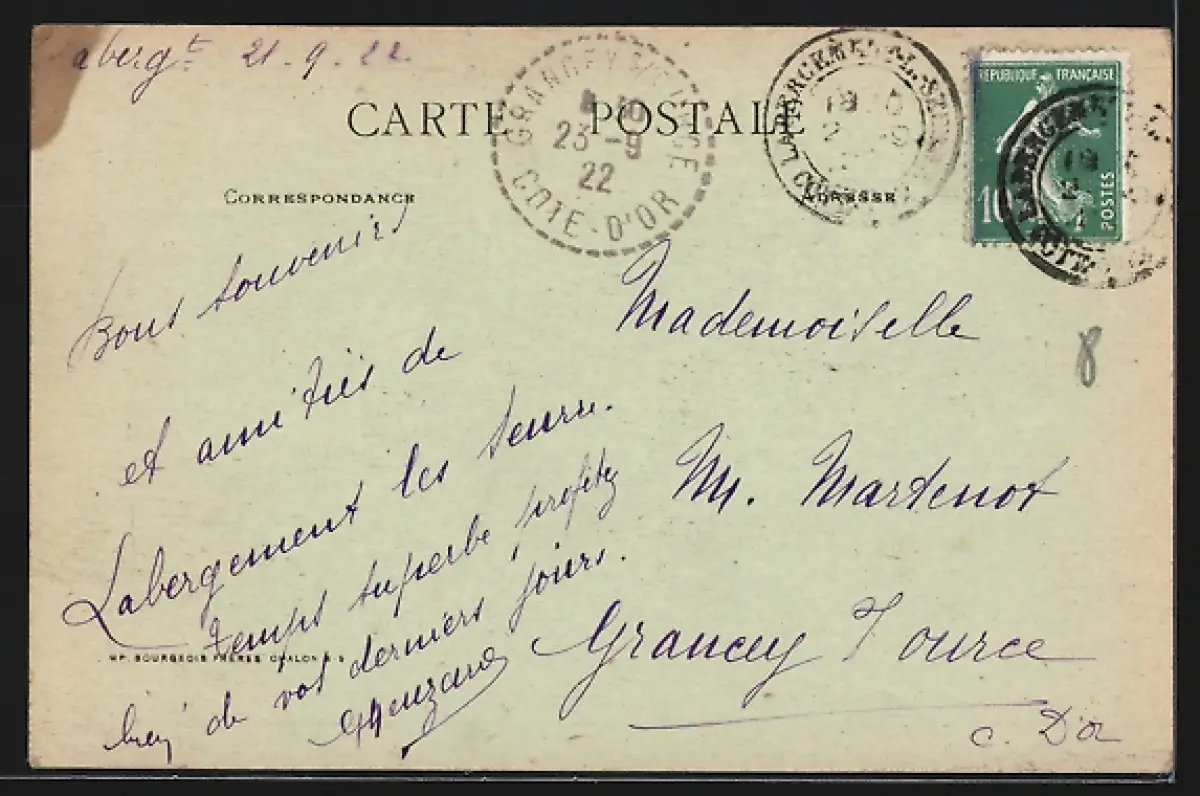 aberg.t 21.9.22
CARTE POSTALE
GRANCEY S/OURCE
23-9
22
COTE-D'OR
LABERGEMENT-L-SEURRE
REPUBLIQUE FRANÇAISE
10
POSTES
CORRESPONDANCE
ADRESSE
Bons Souvenirs
et amitiés de
Labergement les Seurre.
temps superbe, profitez
bien de vos derniers jours.
Mademoiselle
M. Martenot
Grancey s/ource
C. D'or
8
IMP. BOURGEOIS FRÈRES CHALON S S